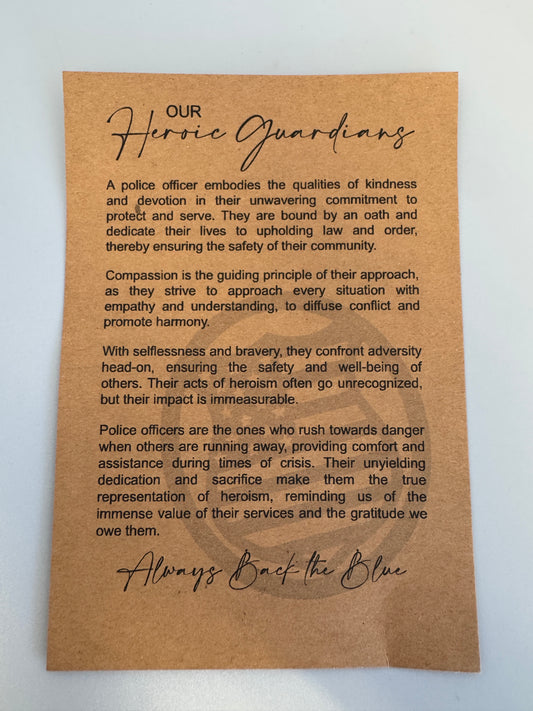 OUR
Heroic Guardians
A police officer embodies the qualities of kindness
and devotion in their unwavering commitment to
protect and serve. They are bound by an oath and
dedicate their lives to upholding law and order,
thereby ensuring the safety of their community.
Compassion is the guiding principle of their approach,
as they strive to approach every situation with
empathy and understanding, to diffuse conflict and
promote harmony.
With selflessness and bravery, they confront adversity
head-on, ensuring the safety and well-being of
others. Their acts of heroism often go unrecognized,
but their impact is immeasurable.
Police officers are the ones who rush towards danger
when others are running away, providing comfort and
assistance during times of crisis. Their unyielding
dedication and sacrifice make them the true
representation of heroism, reminding us of the
immense value of their services and the gratitude we
owe them.
Always Back the Blue